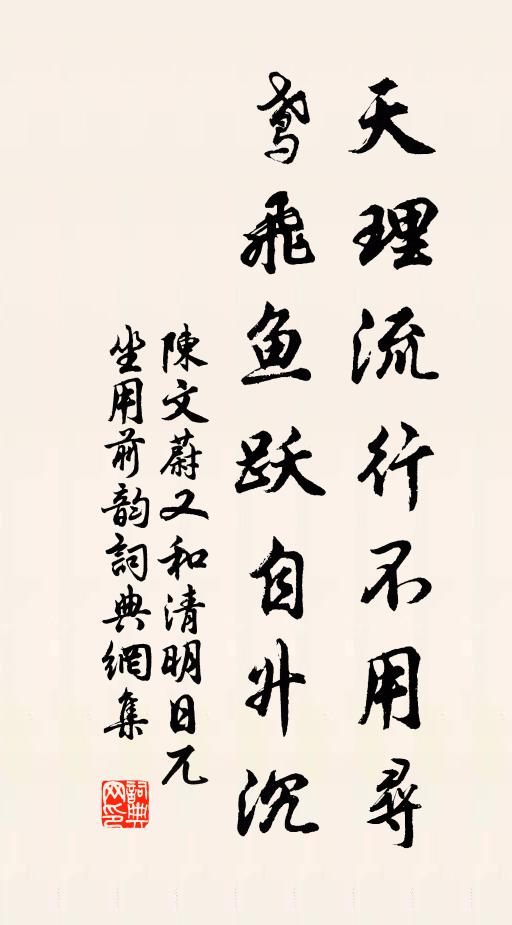 天理流行不用尋
鸢飛鱼跃自升沉
陳文蔚又和清明日兀
坐用前韵詞典網集
詞典网印